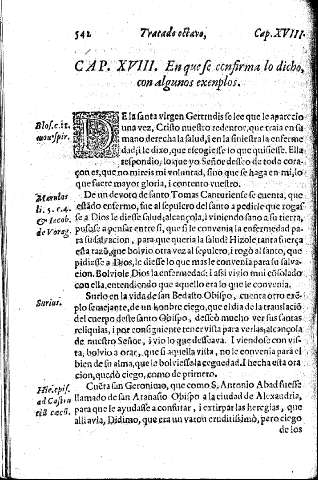 542 Tratado octavo, Cap. XVIII.
CAP. XVIII. En que se confirma lo dicho,
con algunos exemplos.
Blos. c. 11.
DE la santa virgen Gertrudis se lee que le aparecio
una vez, Cristo nuestro redentor, que traia en su
mano derecha la salud, i en la siniestra la enferme
dad, i le dixo, que escogiesse lo que quisiesse. Ella
respondio; lo que yo Señor desseo de toda coraçon
es, que no mireis mi voluntad, sino que se haga en mi, lo
que fuere mayor gloria, i contento vuestro.
Marulus
li. 5. c. 4.
& Iacob.
de Vorag.
De un devoto de santo Tomas Canturiense se cuenta, que
estãdo enfermo, fue al sepulcro del santo a pedirle que rogas
se a Dios le diesse salud; alcançola, i viniendo sano a su tierra,
pusose a pensar entre si, que si le convenia la enfermedad para
su salvacion, para que queria la salud? Hizole tanta fuerça
esta razõ, que bolvio otra vez al sepulcro, i rogò al santo, que
pidiesse a Dios, le diesse lo que mas le convenia para su salva-
cion. Bolviole Dios la enfermedad: i assi vivio mui cõsolado
con ella, entendiendo que aquello era lo que le convenia.
Surius.
Surio en la vida de san Bedasto Obispo, cuenta otro exẽ-
plo semejante, de un hombre ciego, que el dia de la translaciõ
del cuerpo deste santo Obispo, desseò mucho ver sus santas
reliquias, i por consiguiente tener vista para verlas; alcançola
de nuestro Señor, i vio lo que desseava. I viendose con vis-
ta, bolvio a orar, que si aquella vista, no le convenia para el
bien de su alma, que la bolviesse la ceguedad. I hecha esta ora
cion, quedò ciego, como de primero.
Hie. epis.
ad Castru
tiũ cæcũ.
Cuẽta san Geronimo, que como S. Antonio Abad fuesse
llamado de san Atanasio Obispo a la ciudad de Alexandria,
para que le ayudasse a confutar, i extirpar las heregias, que
alli avia, Didimo, que era un varon eruditissimo, pero ciego
de los